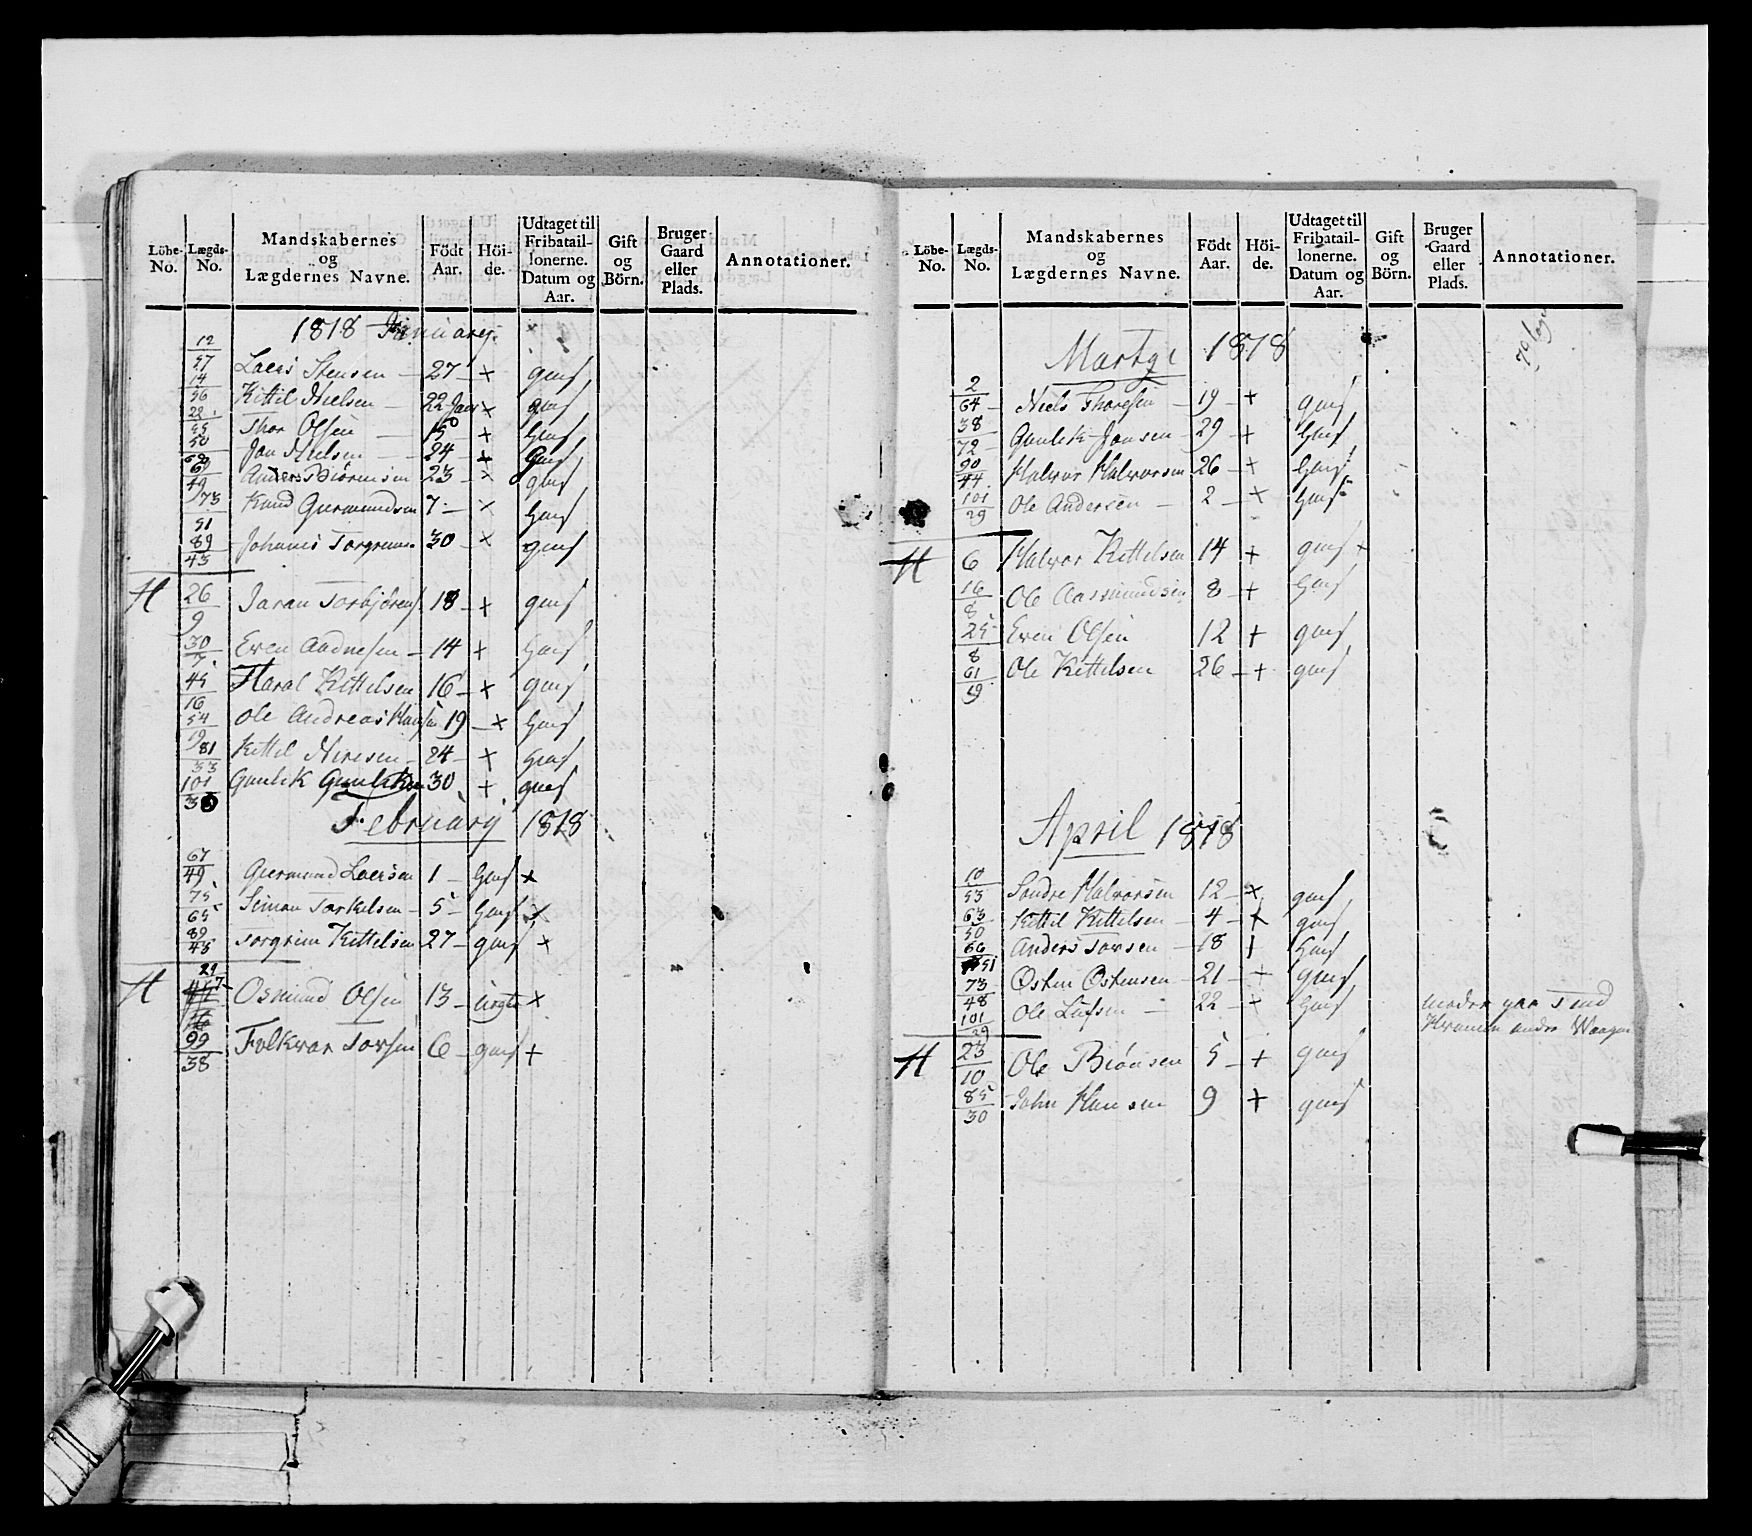 Löbe- No. Lægds- No. Mandskabernes og Lægdernes Navne. Födt Aar. Höi- de. Udtaget til Fribatail- lonerne. Datum og Aar. Gift og Börn. Bruger Gaard eller Plads. Annotationer.
1818 Januarij
12
57 Laers Stensen – 27 – x gms
14
56 Kittil Nielsen – 22 Jan x gms
22
55 Thor Olsen – 15 – + gms
50
Jon Nielsen – 24 – + gms
69
49 Anders Biörensen 23 – x gms
73
51 Knud Guermundsen 7 – x gms
89
43 Johanes Torgrims. 30 – x gms
H 26
9 Jaran Torbjörens 18 – x gms
30
Even Andnesen – 14 + gms
45
16 Haral Kittelsen 16 – x gms
54
19 Ole Andreas Hansen 19 – x gms
81
33 Kittil Niresen – 24 – x gms
101
30 Gunlek Gunleksen 30 + gms
February 1818
67
49 Guermund Laersen 1 – gms x
75
65 Simon Torkelsen – 5 – gms x
89
43 Torgrim Kittelsen 27 – gms x
H 29
Osmund Olsen 13 – x
99
38 Folkvar Torsen 6 – gms +
Löbe- No. Lægds- No. Mandskabernes og Lægdernes Navne. Födt Aar. Höi- de. Udtaget til Fribatail- lonerne. Datum og Aar. Gift og Börn. Bruger Gaard eller Plads. Annotationer.
Martze 1818
2
64 – Niels Thoresen – 19 – + gms
38
72 – Gunlek Jonsen – 29 – + gms
90
44 Halvor Halvorsen 26 – + gms
101
29 Ole Andersen – 2 – x gms
H 6 Halvor Kittelsen 14 + gms +
16
8 Ole Aasmundsen 8 – + gms
25
8 Even Olsen 12 + gms
61
59 Ole Kittelsen 26 – + gms
April 1818
10
53 Sondre Halvorsen 12 – x gms
63
50 Kittil Kittelsen – 4 – x gms
66
51 Anders Torsen – 18 + gms
73
48 Östen Östensen – 21 – + gms
101
29 Ole – 22 – + gms
H 23
10 Ole Biönsen 5 – + gms
85
30 John Hansen 9 + gms